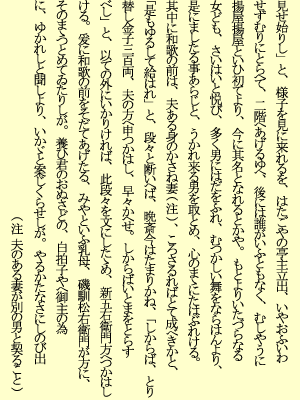 見せ始りし」と、様子を見に来れるを、はたごやの亭主立出、いやおふいわ
せずむりにとらて、二階へあげるゆへ、後には誰がいふともなく、むしやうに
揚屋揚屋といひ初てより、今に其名となれるとかや。もとよりいたづらなる
女ども、さいはいと悦び、多く男にはだをふれ、むつかしい舞をならはんより、
是にましたる事あらじと、うかれ来る男を取とめ、心のまくにたはぶれける。
其中に和歌の前は、夫ある身のかさね妻(注)、ころさるればとて成べきかと、
「是もゆるして給はれ」と、段々と断いへば、晩斎今はたまりかね、「しからば、とり
替し金子二百両、夫の方へ申つかはし、早々かへせ。しからばいとまをとらす
べし」と、以ての外にいかりければ、此段々を文にしたゝめ、新五左衛門方へつかはし
ける。爰に和歌の前をそだてあげたる、みやといふ乳母、磯馴松右衛門が方に、
そのまゝつとめてゐたりしが。養ひ君のおぬさどの、白拍子やへ御主の為
に、ゆかれしと聞しより、いかゞと案じくらせしが。やるかたなさにしのび出
(注 夫のある妻が別の男と契ること)